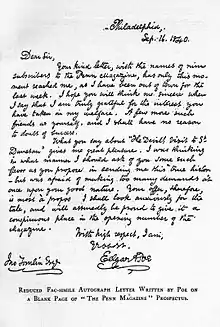 Philadelphia,
Sep: 16. 1840.
Dear Sir,
Your kind letter, with the names of nine
subscribers to the Penn Magazine, has only this mo-
ment reached me, as I have been out of town for the
last week. I hope you will think me sincere when
I say that I am truly grateful for the interest you
have taken in my welfare. A few more such
friends as yourself, and I shall have no reason
to doubt of success.
What you say about "The Devil's Visit to St
Dunstan" gives me great pleasure. I was thinking
in what manner I should ask of you some such
favor as you propose in sending me this true
— but was afraid of making too many demands at
once upon your good nature. Your offer, therefore,
is most à propos. I shall look anxiously for the
tale, and will assuredly be proud to give it a
conspicuous place in the opening number of the
Magazine.
With high respect, I am,
Yours &c
Edgar A Poe
Jno Tomlin Esqr.
REDUCED FAC-SIMILE AUTOGRAPH LETTER WRITTEN BY POE ON
A BLANK PAGE OF "THE PENN MAGAZINE" PROSPECTUS.